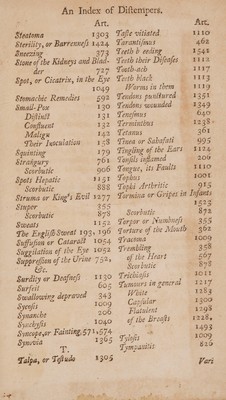 An Index of Distempers.
Art.
Steatoma 1303
Sterility, or Barrenness 1424
Sneezing 373
Stone of the Kidneys and Bladder 727
Spot, or Cicatrix, in the Eye
1049
Stomachic Remedies 592
Small-Pox 130
Distinct 131
Confluent 132
Malign 142
Their Inoculation 138
Squinting 179
Strangury 761
Scorbutic 906
Spots Hepatic 1151
Scorbutic 888
Struma or King's Evil 1277
Stupor 355
Scorbutic 878
Sweats 1152
The English Sweat 193, 196
Suffusion or Cataract 1054
Suggilation of the Eye 1052
Suppression of the Urine 752,
&c.
Surdity or Deafness 1130
Surfeit 605
Swallowing depraved 343
Sycosis 1009
Synanche 206
Synchysis 1040
Syncope, or Fainting, 571, 574
Synovia 1365
T.
Talpa, or Testudo 1305
Art.
Taste vitiated 1110
Tarantismus 462
Teeth breeding 1541
Teeth their Diseases 1111
Tooth-ach 1117
Teeth black 1113
Worms in them 1119
Tendons punctured 1351
Tendons wounded 1349
Tenesmus 640
Terminthus 1238
Tetanus 361
Tinea or Sahafati 995
Tingling of the Ears 1124
Tonsils inflamed 206
Tongue, its Faults 1110
Tophus 1001
Tophi Arthritic 915
Tormina or Gripes in Infants
1525
Scorbutic 872
Torpor or Numbness 355
Torture of the Mouth 362
Tracoma 1009
Trembling 358
of the Heart 567
Scorbutic 878
Trichiasis 1011
Tumours in general 1217
White 1283
Capsular 1300
Flatulent 1298
of the Breasts 1228,
1493
Tylosis 1009
Tympanitis 826
Vari